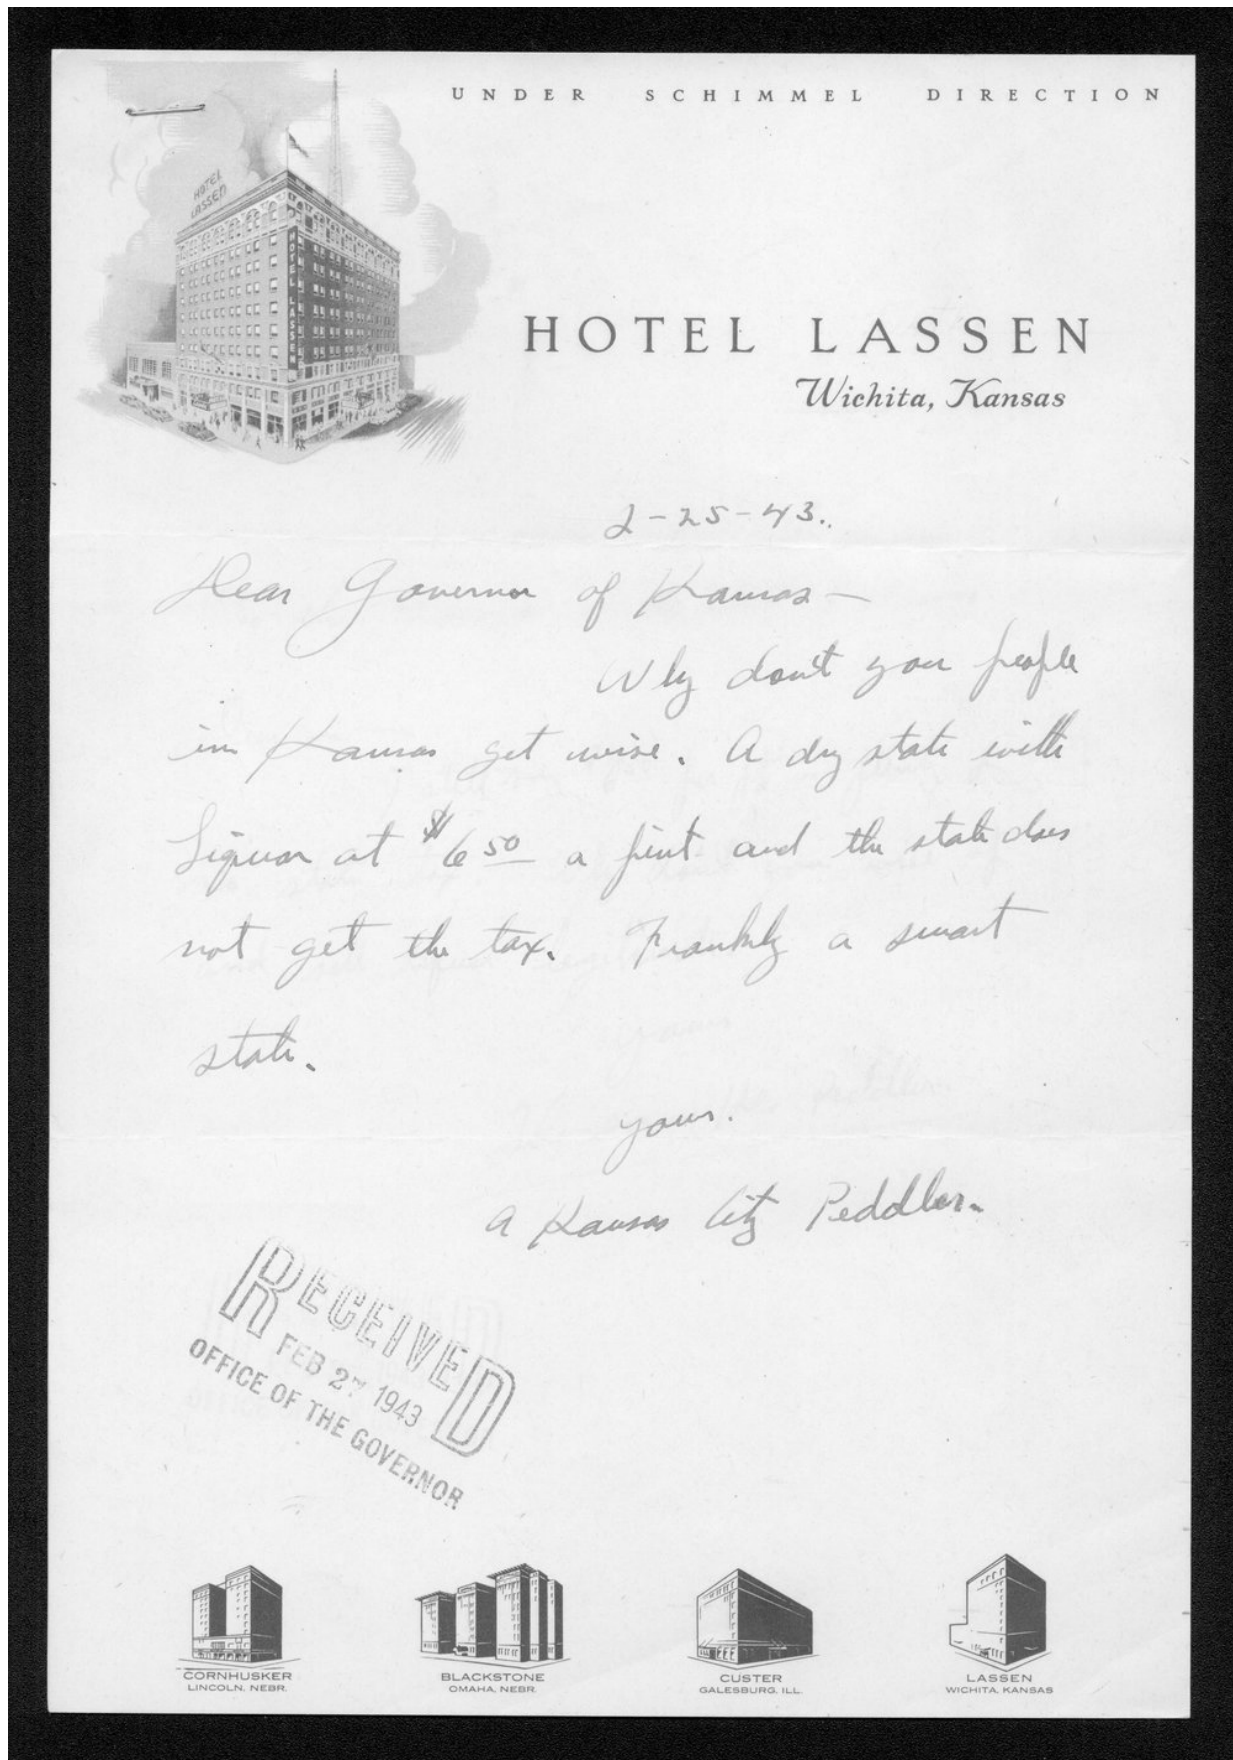 UNDER SCHIMMEL DIRECTION
HOTEL LASSEN
HOTEL LASSEN
HOTEL LASSEN
Wichita, Kansas
2-25-43.
Dear Governor of Kansas—
Why don't you people
in Kansas get wise. A dry state with
Liquor at $6 50 a pint and the state does
not get the tax. Frankly a smart
state.
yours.
A Kansas City Peddler.
RECEIVED
FEB 27 1943
OFFICE OF THE GOVERNOR
CORNHUSKER
LINCOLN, NEBR.
BLACKSTONE
OMAHA, NEBR.
CUSTER
GALESBURG, ILL.
LASSEN
WICHITA, KANSAS